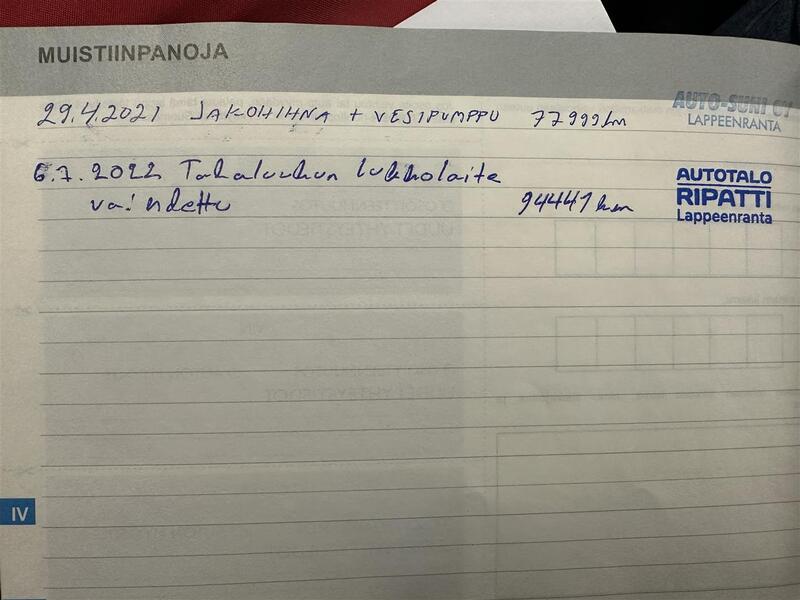 MUISTIINPANOJA
29.4.2021 JAKOHIHNA + VESIPUMPPU 77999km
AUTO-SUNI OY
LAPPEENRANTA
6.7.2022 Takaluukun lukkolaite
vaihdettu 94441km
AUTOTALO
RIPATTI
Lappeenranta
IV